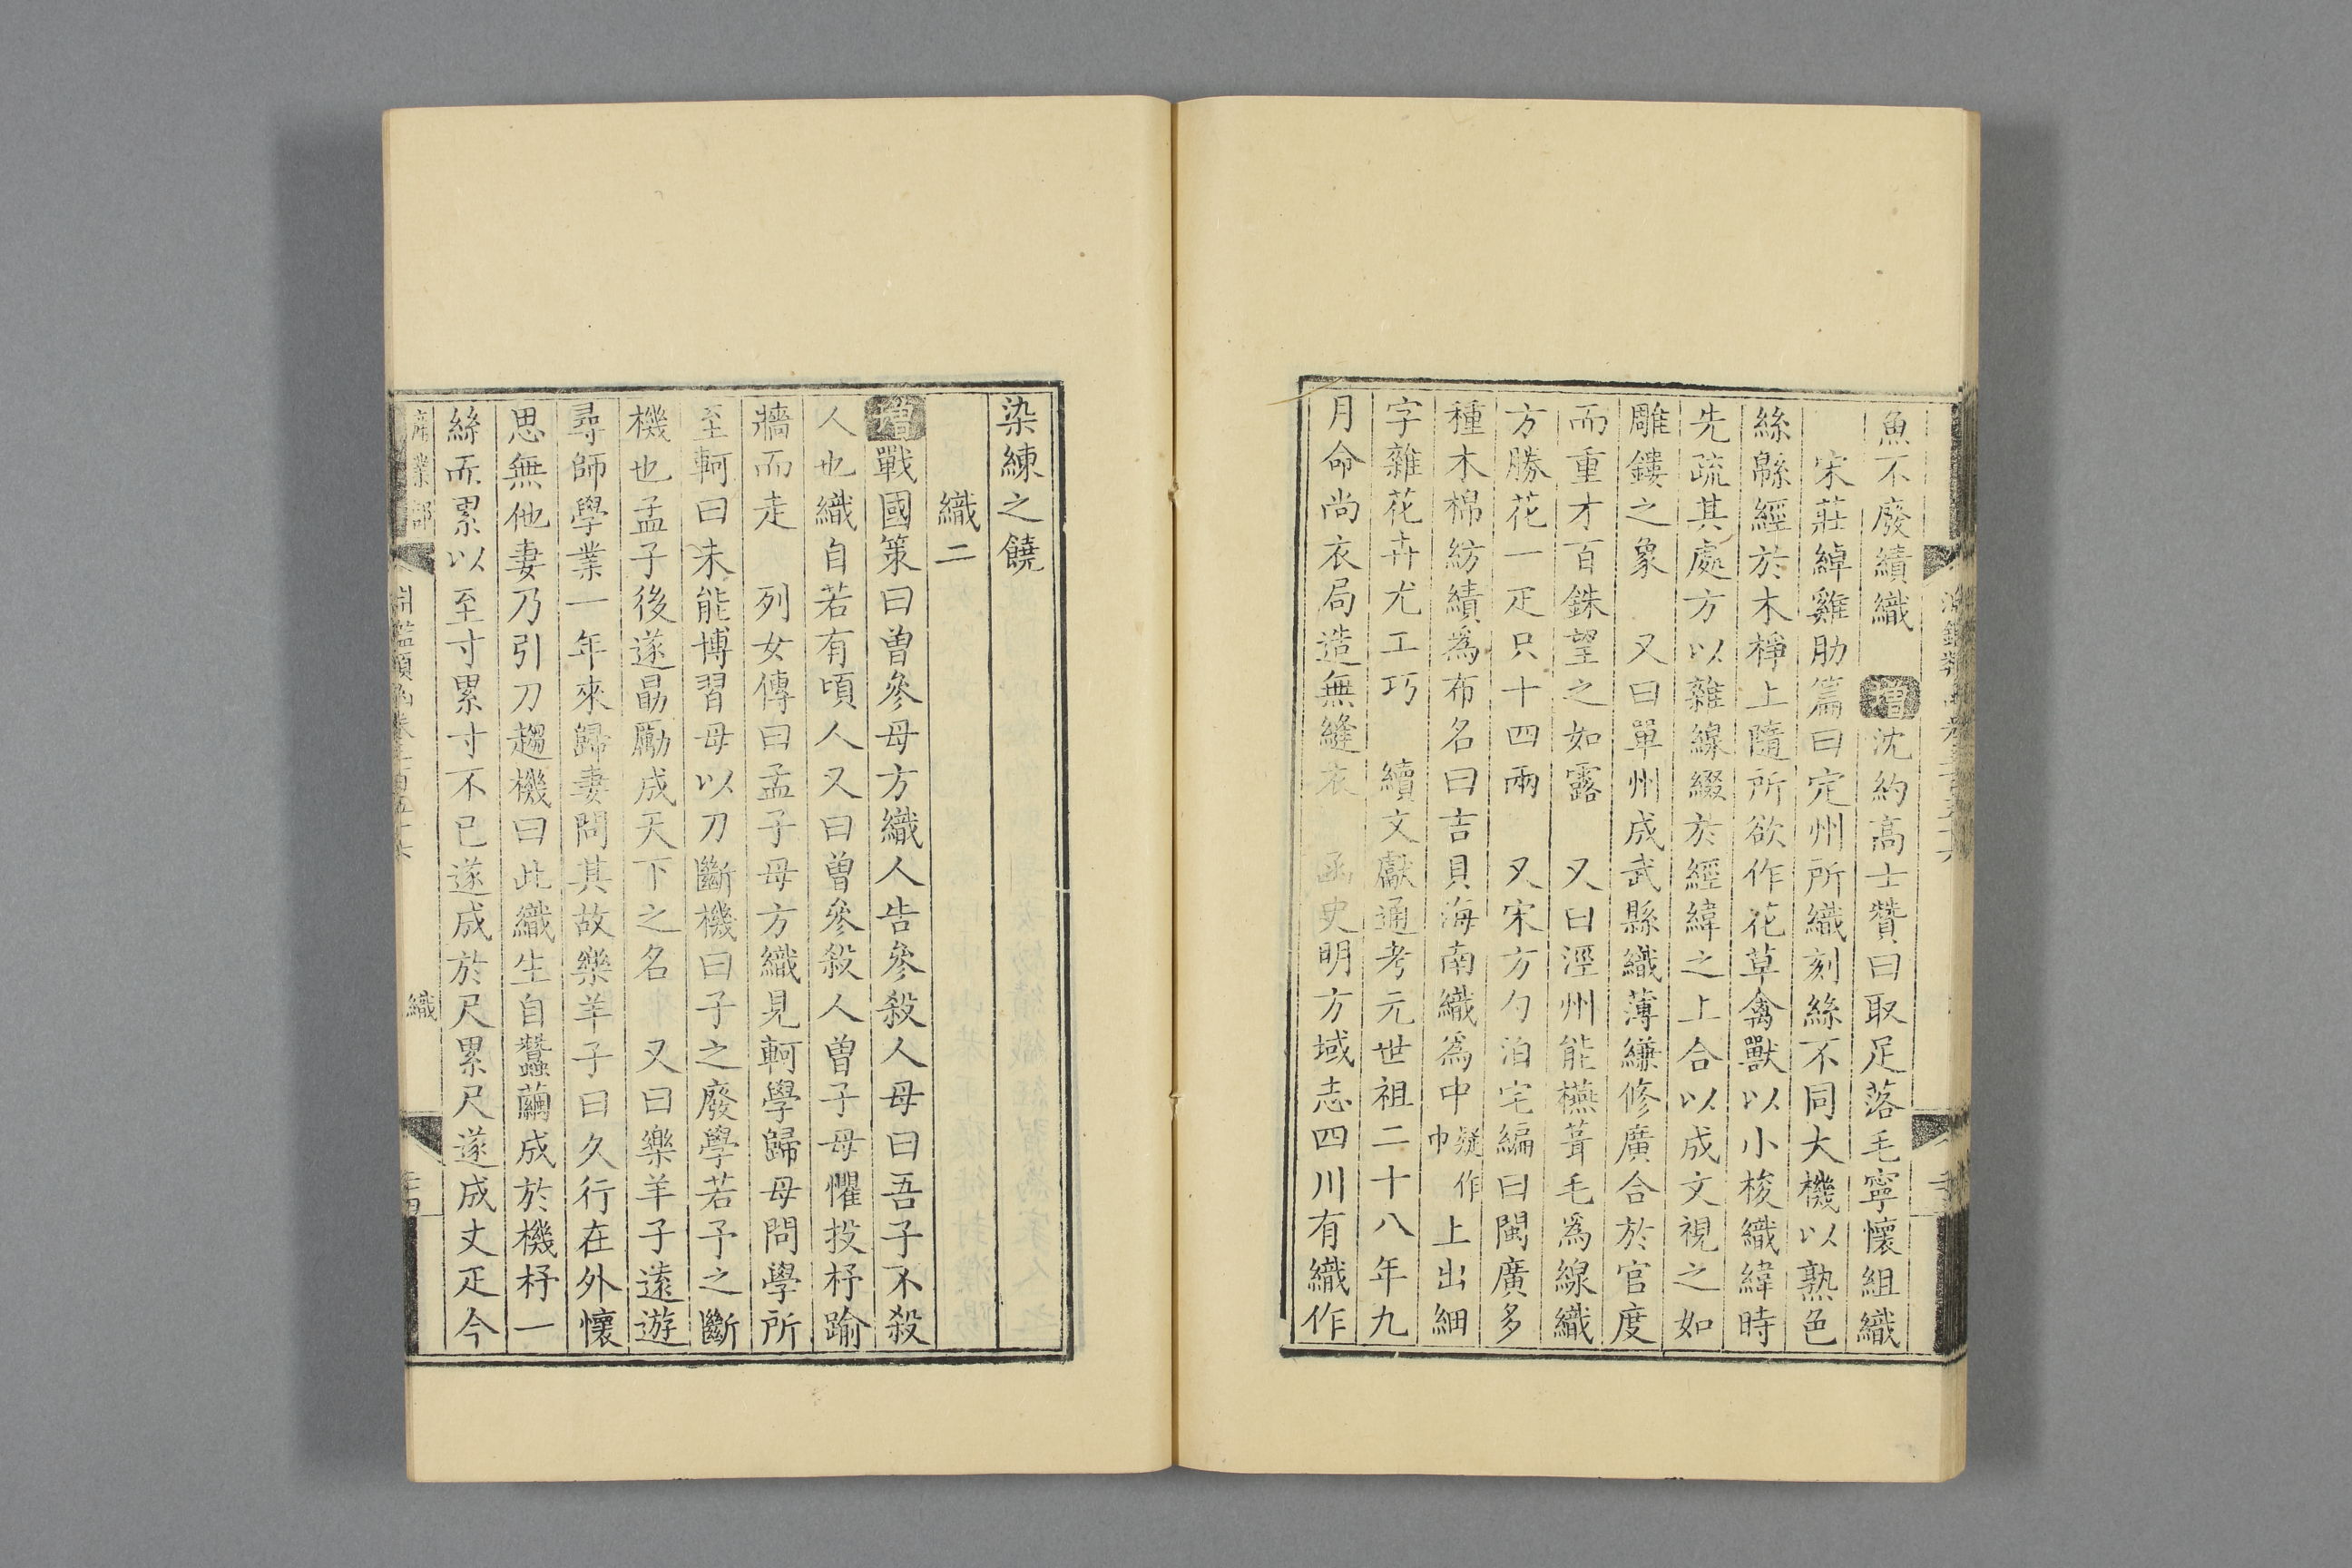 魚不廢績織　增沈約高士贊曰取足落毛寧懷組織
宋莊綽雞肋篇曰定州所織刻絲不同大機以熟色
絲緜經於木棦上隨所欲作花草禽獸以小梭織緯時
先疏其處方以雜線綴於經緯之上合以成文視之如
雕鏤之象　又曰單州成武縣織薄縑修廣合於官度
而重才百銖望之如霧　又曰涇州能撚茸毛爲線織
方勝花一疋只十四兩　又宋方勺泊宅編曰閩廣多
種木棉紡績爲布名曰吉貝海南織爲中疑作巾上出細
字雜花卉尤工巧　續文獻通考元世祖二十八年九
月命尚衣局造無縫衣　函史明方域志四川有織作
染練之饒
織二
增戰國策曰曾參母方織人告參殺人母曰吾子不殺
人也織自若有頃人又曰曾參殺人曾子母懼投杼踰
牆而走　列女傳曰孟子母方織見軻學歸母問學所
至軻曰未能博習母以刀斷機曰子之廢學若予之斷
機也孟子後遂勗勵成天下之名　又曰樂羊子遠遊
尋師學業一年來歸妻問其故樂羊子曰久行在外懷
思無他妻乃引刀趨機曰此織生自蠶繭成於機杼一
絲而累以至寸累寸不已遂成於尺累尺遂成丈疋今
產業部　淵鑑類函卷三百五十六　織